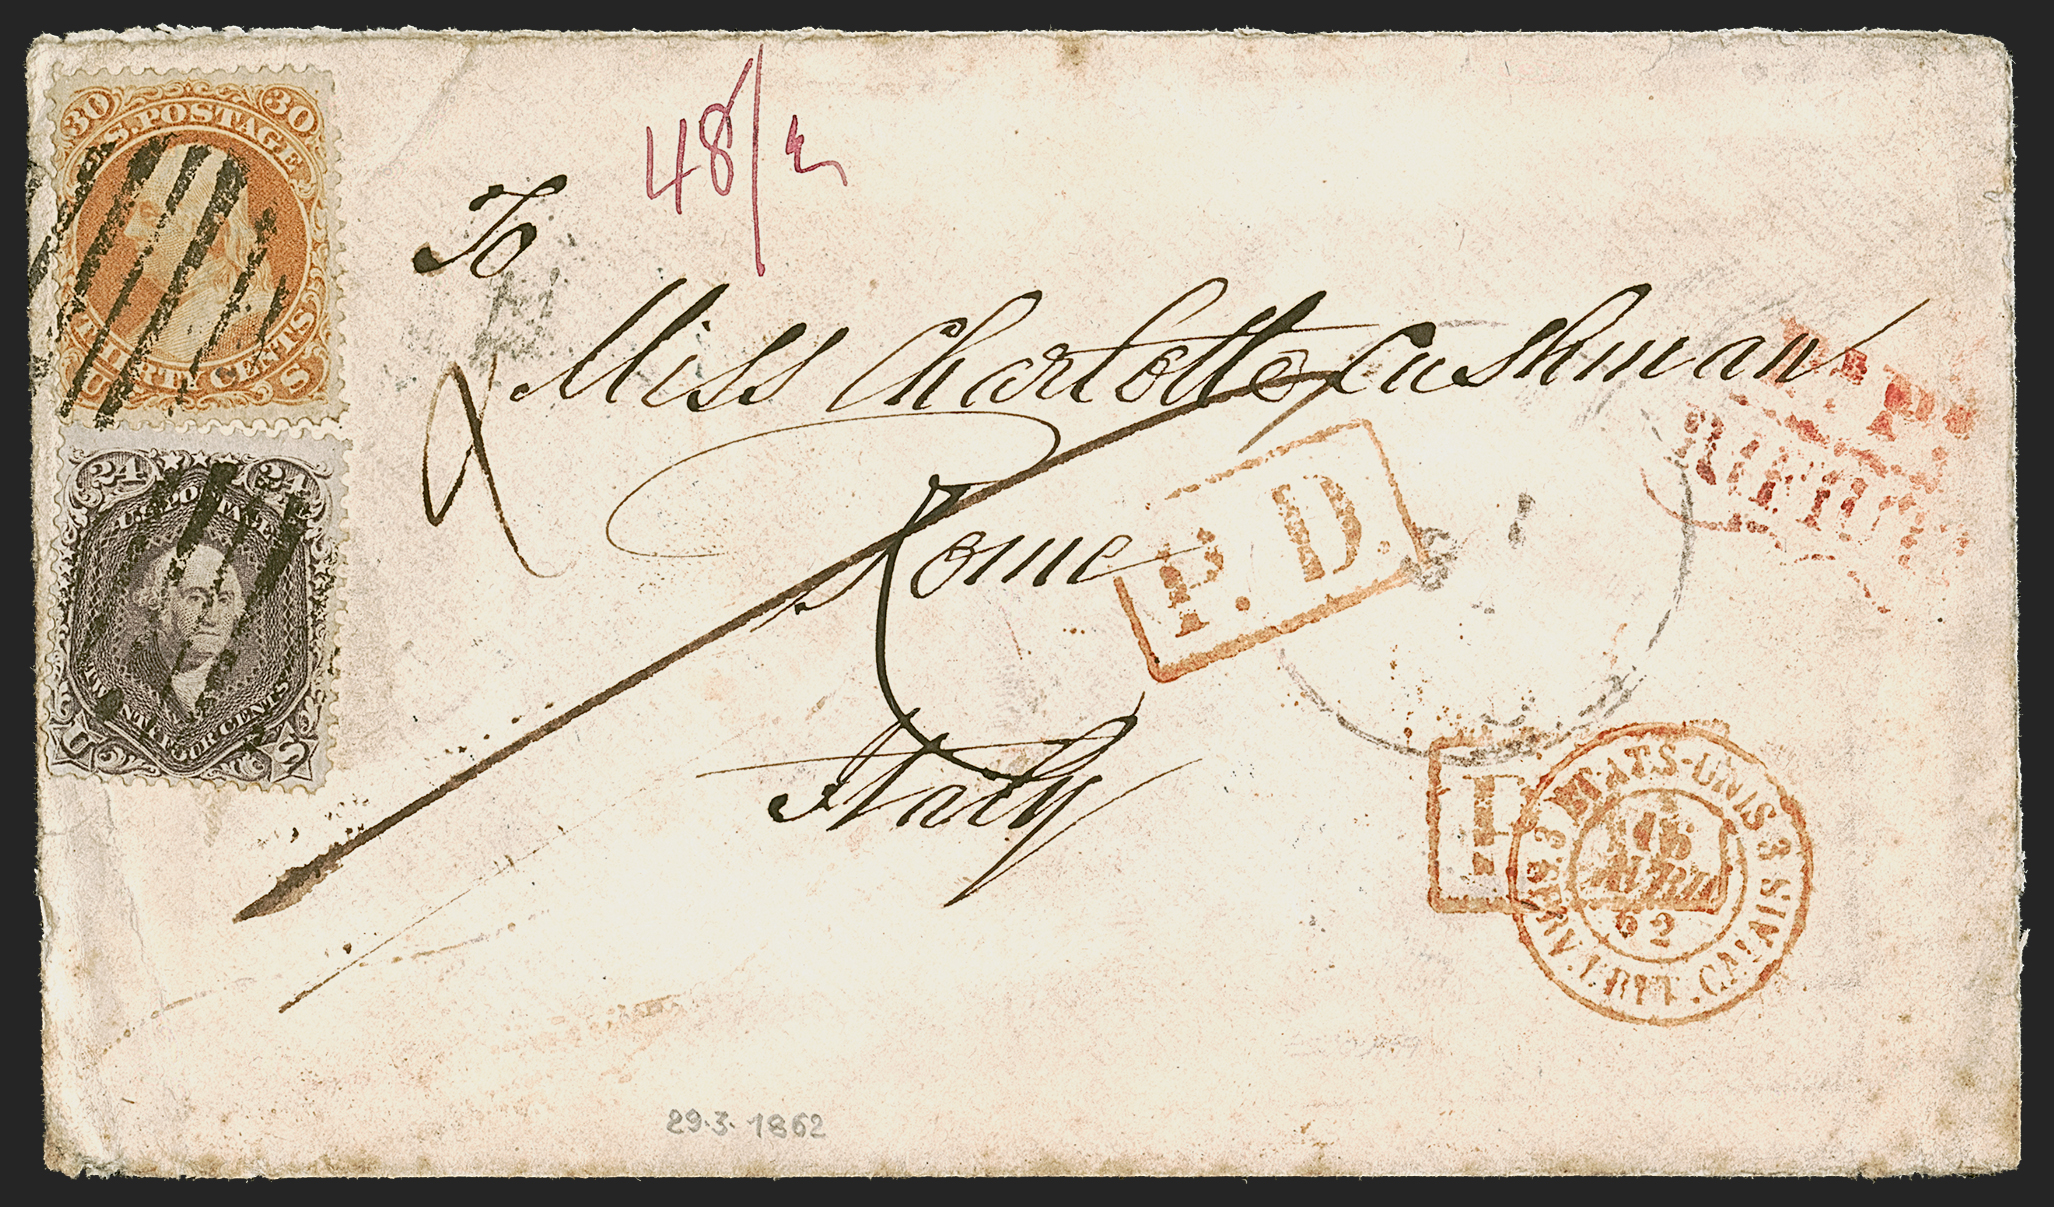 30 30
U.S. POSTAGE
THIRTY CENTS
U S
24 24
U.S. POSTAGE
TWENTY FOUR CENTS
U S
48/2
To
Miss Charlotte Cushman
Rome
Italy
P.D.
ETATS-UNIS
3 SERV. AM. BRIT. CALAIS 3
AVRIL
62
29.3.1862